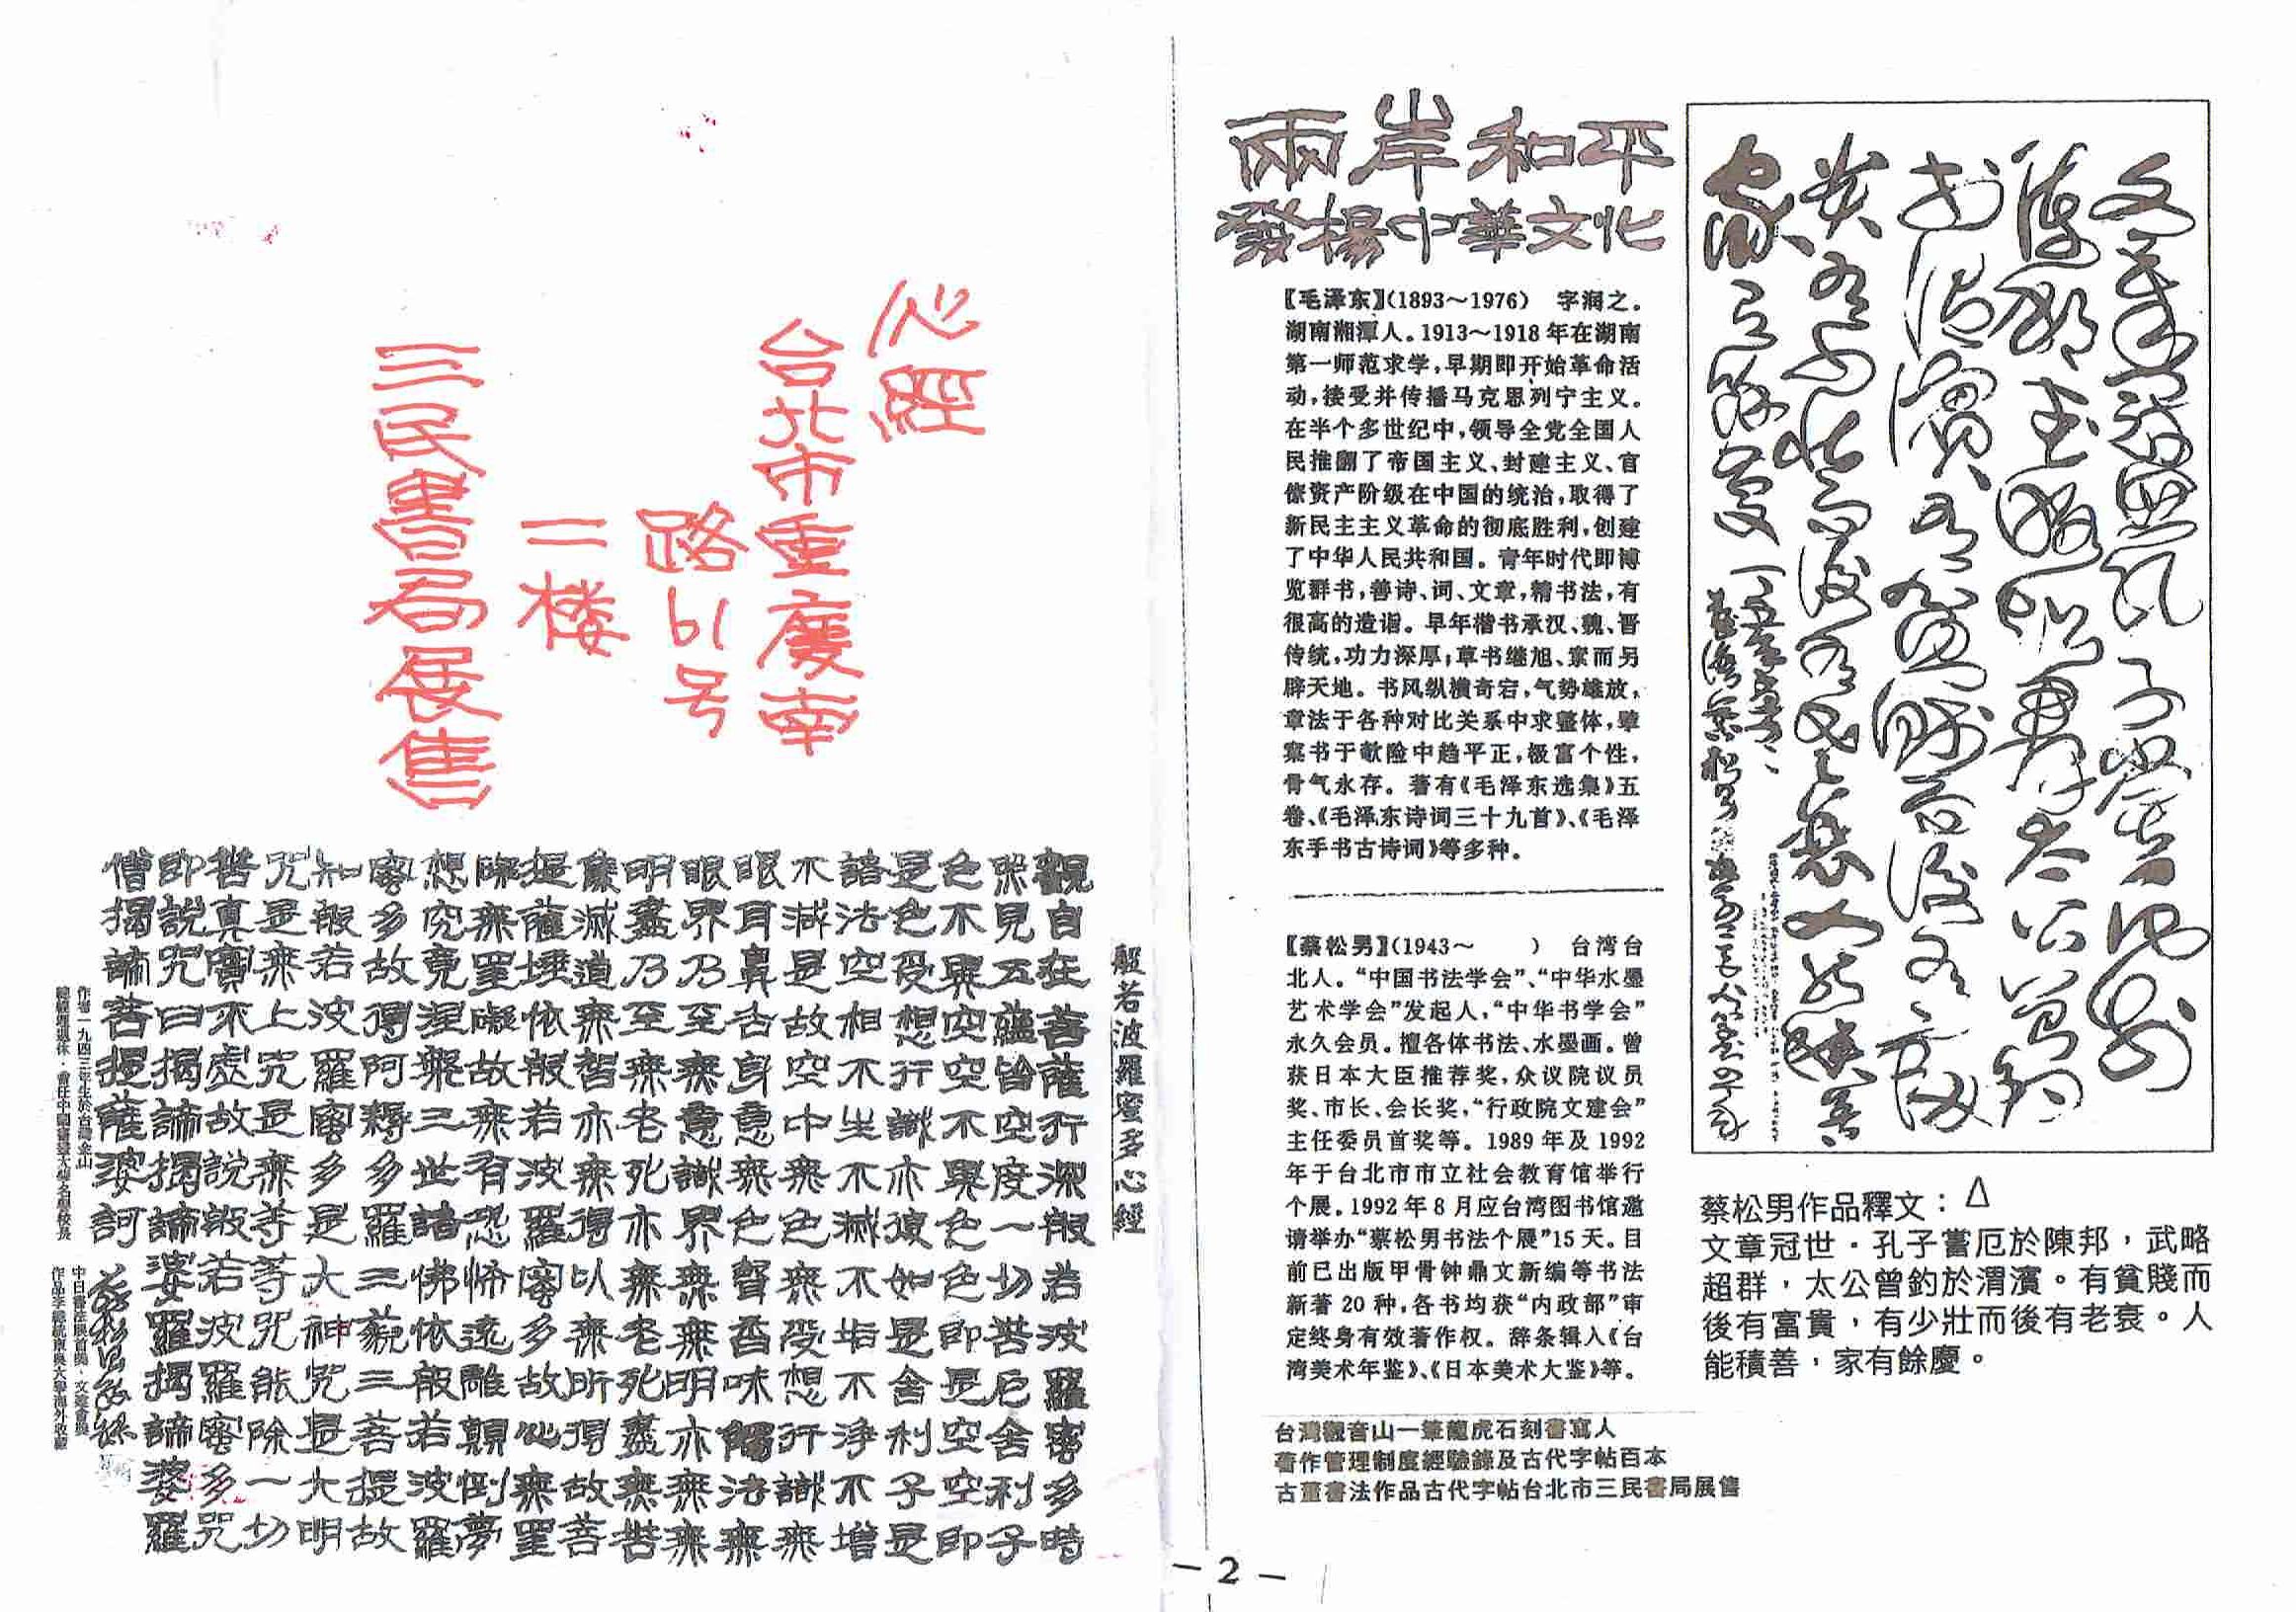 心經
台北市重慶南
路61号
二楼
三民書局展售
般若波羅蜜多心經
觀自在菩薩行深般若波羅蜜多時
照見五蘊皆空度一切苦厄舍利子
色不異空空不異色色即是空空即
是色受想行識亦復如是舍利子是
諸法空相不生不滅不垢不淨不增
不減是故空中無色無受想行識無
眼耳鼻舌身意無色聲香味觸法無
眼界乃至無意識界無無明亦無無
明盡乃至無老死亦無老死盡無苦
集滅道無智亦無得以無所得故菩
提薩埵依般若波羅蜜多故心無罣
礙無罣礙故無有恐怖遠離顛倒夢
想究竟涅槃三世諸佛依般若波羅
蜜多故得阿耨多羅三藐三菩提故
知般若波羅蜜多是大神咒是大明
咒是無上咒是無等等咒能除一切
苦真實不虛故說般若波羅蜜多咒
即說咒曰揭諦揭諦婆羅揭諦婆羅
僧揭諦菩提薩婆訶
作者一九四三年生於台灣金山
中日書法展首獎、文建會獎
兩岸和平
發揚中華文化
【毛泽东】(1893～1976) 字润之。
湖南湘潭人。1913～1918年在湖南
第一师范求学,早期即开始革命活
动,接受并传播马克思列宁主义。
在半个多世纪中,领导全党全国人
民推翻了帝国主义、封建主义、官
僚资产阶级在中国的统治,取得了
新民主主义革命的彻底胜利,创建
了中华人民共和国。青年时代即博
览群书,善诗、词、文章,精书法,有
很高的造诣。早年楷书承汉、魏、晋
传统,功力深厚;草书继旭、素而另
辟天地。书风纵横奇宕,气势雄放,
章法于各种对比关系中求整体,擘
窠书于欹险中趋平正,极富个性,
骨气永存。著有《毛泽东选集》五
卷、《毛泽东诗词三十九首》、《毛泽
东手书古诗词》等多种。
【蔡松男】(1943～ ) 台湾台
北人。“中国书法学会”、“中华水墨
艺术学会”发起人,“中华书学会”
永久会员。擅各体书法、水墨画。曾
获日本大臣推荐奖,众议院议员
奖、市长、会长奖,“行政院文建会”
主任委员首奖等。1989年及1992
年于台北市市立社会教育馆举行
个展。1992年8月应台湾图书馆邀
请举办“蔡松男书法个展”15天。目
前已出版甲骨钟鼎文新编等书法
新著20种,各书均获“内政部”审
定终身有效著作权。辞条辑入《台
湾美术年鉴》、《日本美术大鉴》等。
台灣觀音山一筆龍虎石刻書寫人
著作管理制度經驗錄及古代字帖百本
古董書法作品古代字帖台北市三民書局展售
蔡松男作品釋文：△
文章冠世．孔子嘗厄於陳邦，武略
超群，太公曾釣於渭濱。有貧賤而
後有富貴，有少壯而後有老衰。人
能積善，家有餘慶。
－2－